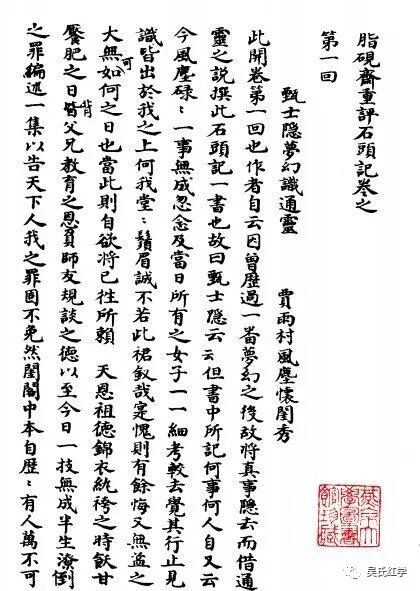 脂硯齋重評石頭記卷之
第一回
甄士隱夢幻識通靈　賈雨村風塵懷閨秀
此開卷第一回也作者自云因曾歷過一番夢幻之後故將真事隱去而借通
靈之說撰此石頭記一書也故曰甄士隱云云但書中所記何事何人自又云
今風塵碌〻一事無成忽念及當日所有之女子一一細考較去覺其行止見
識皆出於我之上何我堂〻鬚眉誠不若此裙釵哉寔愧則有餘悔又無益之
大無可如何之日也當此則自欲將已往所賴　天恩祖德錦衣紈袴之時飫甘
饜肥之日背父兄教育之恩負師友規談之德以至今日一技無成半生潦倒
之罪編述一集以告天下人我之罪固不免然閨閣中本自歷〻有人萬不可
吳氏红学